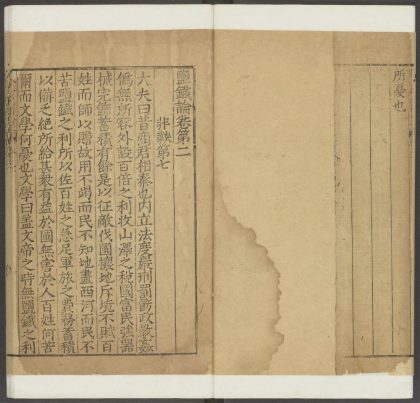 所憂也
鹽鐵論卷第二
非鞅第七
大夫曰昔商君相秦也內立法度嚴刑罰飭政教姦
偽無所容外設百倍之利收山澤之稅國富民強器
械完飾蓄積有餘是以征敵伐國攘地斥境不賦百
姓而師以贍故用不竭而民不知地盡西河而民不
苦鹽鐵之利所以佐百姓之急足軍旅之費務蓄積
以備乏絕所給甚衆有益於國無害於人百姓何苦
爾而文學何憂也文學曰蓋文帝之時無鹽鐵之利